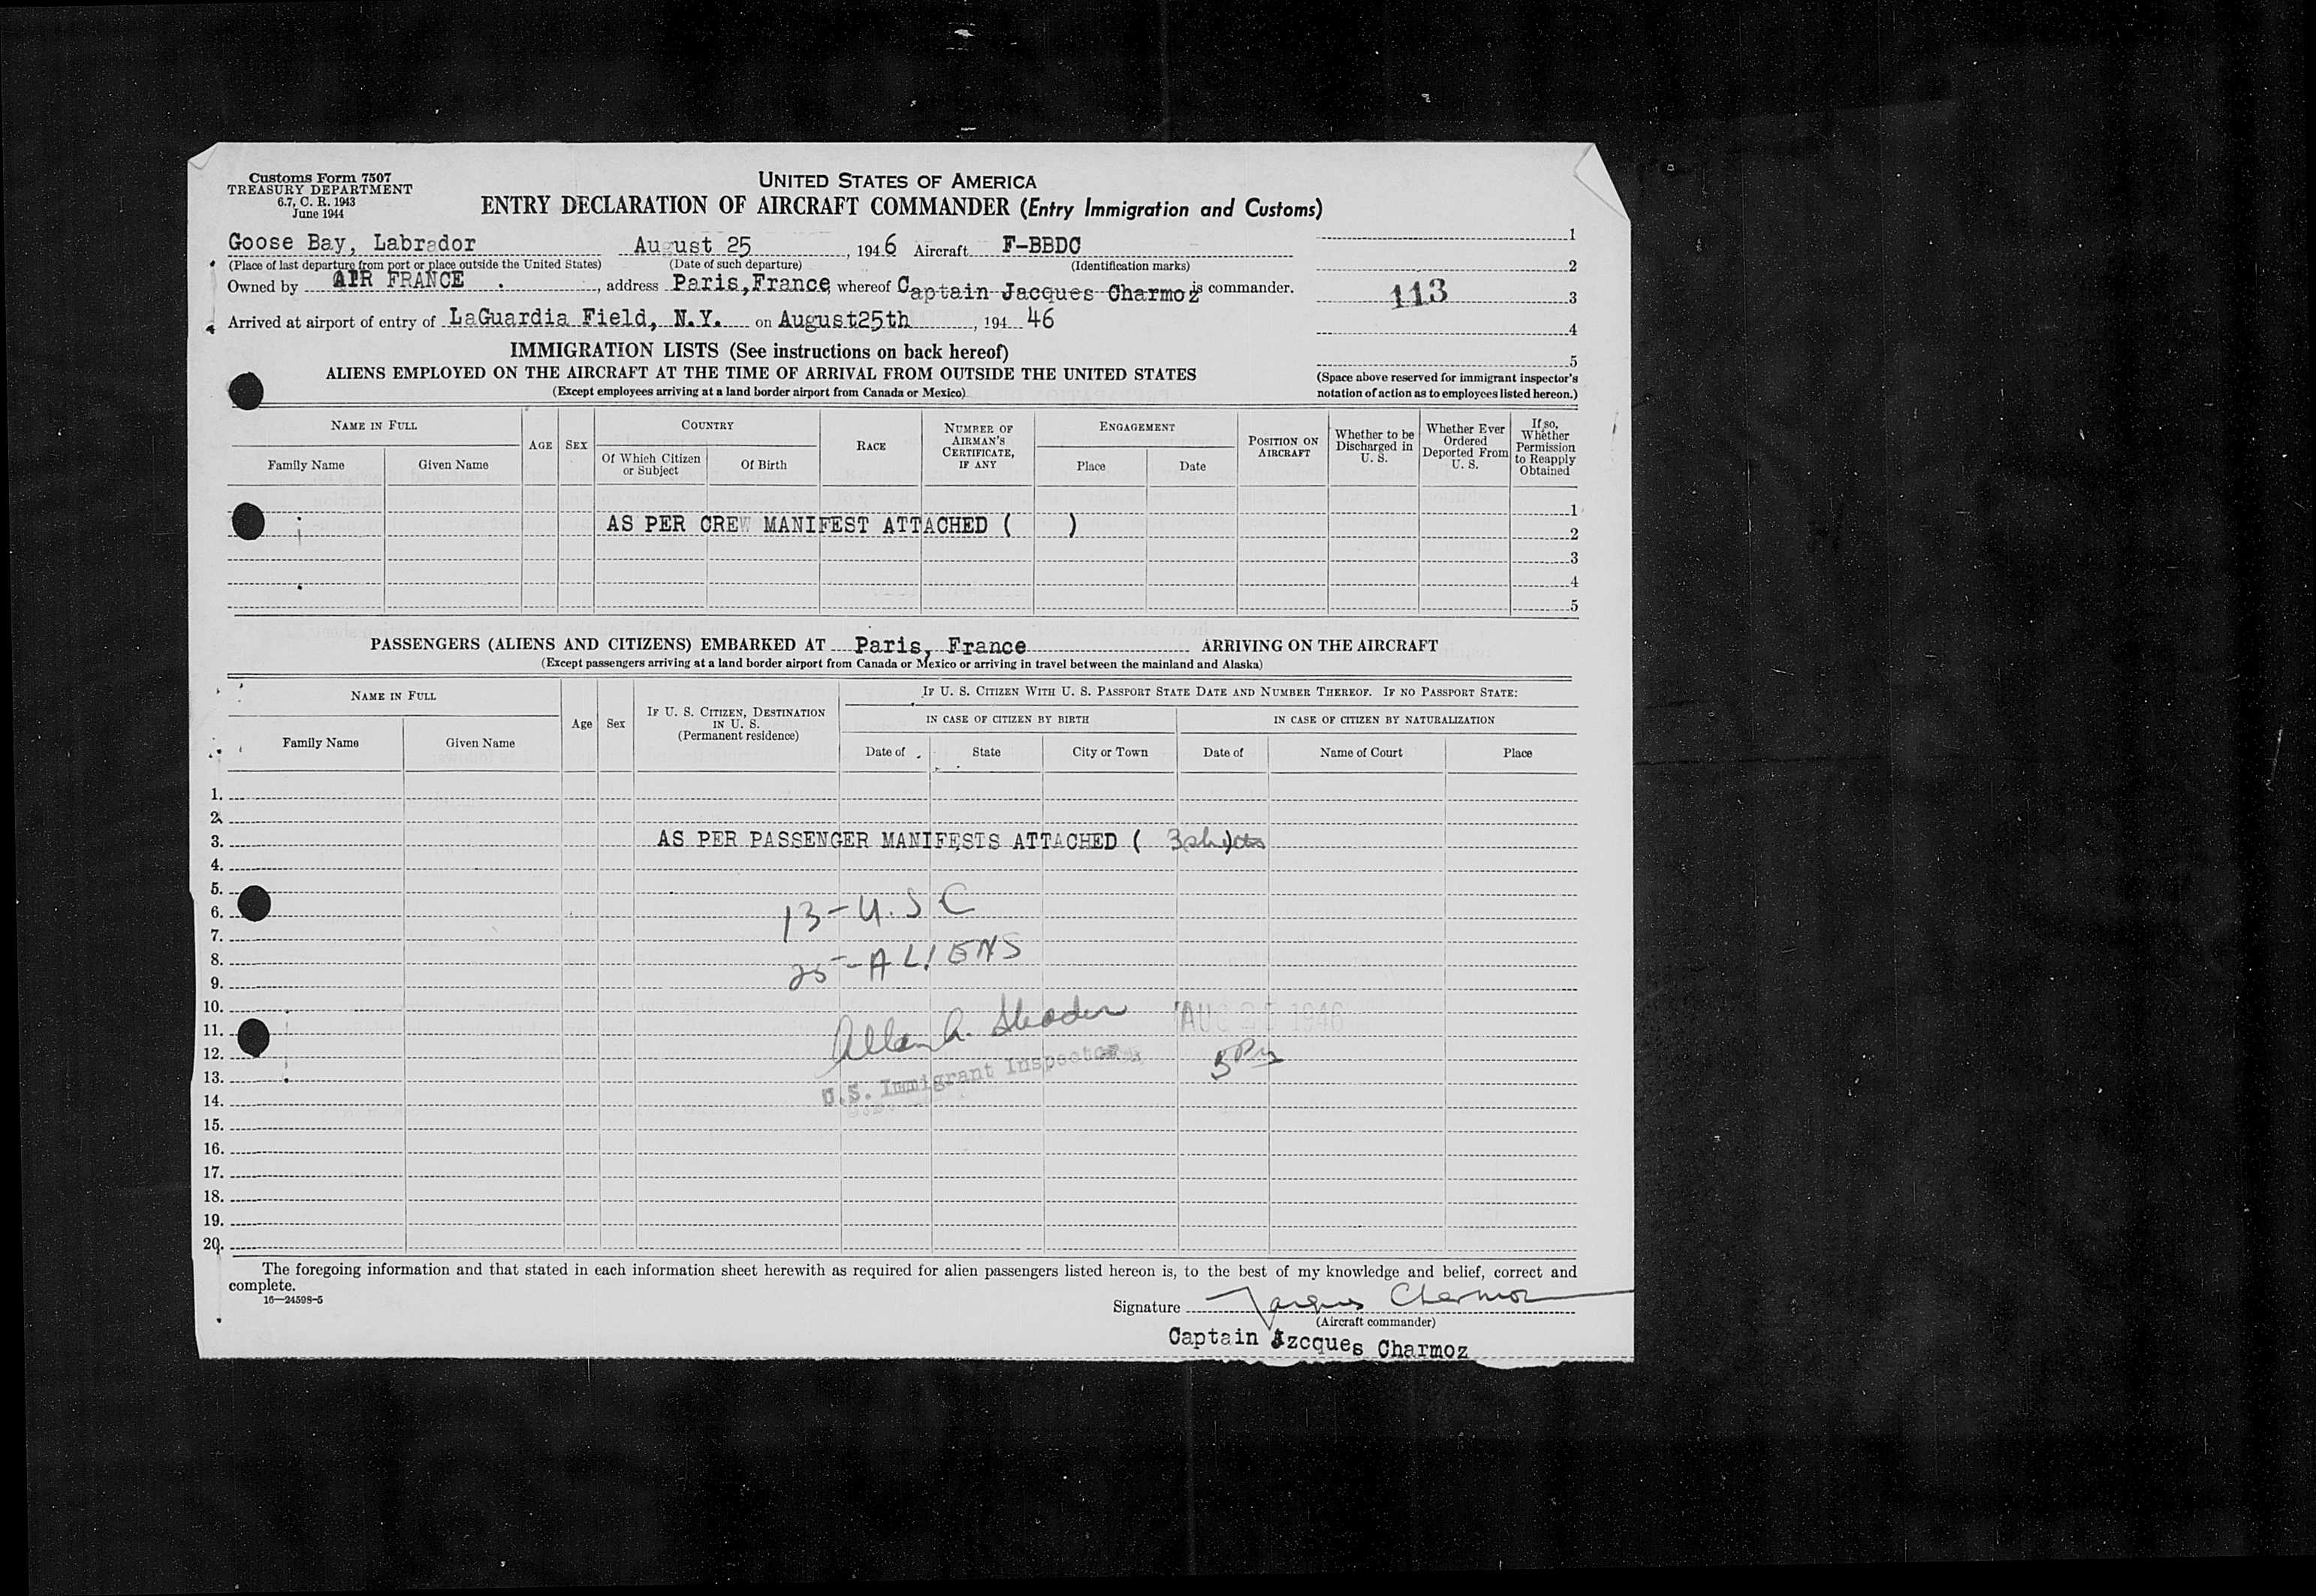 Customs Form 7507
TREASURY DEPARTMENT
6.7, C. R. 1943
June 1944
UNITED STATES OF AMERICA
ENTRY DECLARATION OF AIRCRAFT COMMANDER (Entry Immigration and Customs)
Goose Bay, Labrador August 25, 1946 Aircraft F-BBDC
(Place of last departure from port or place outside the United States) (Date of such departure) (Identification marks)
Owned by AIR FRANCE., address Paris, France, whereof Captain Jacques Charmoz is commander.
Arrived at airport of entry of LaGuardia Field, N.Y. on August25th, 194 46
1
2
113 3
4
5
(Space above reserved for immigrant inspector's
notation of action as to employees listed hereon.)
IMMIGRATION LISTS (See instructions on back hereof)
ALIENS EMPLOYED ON THE AIRCRAFT AT THE TIME OF ARRIVAL FROM OUTSIDE THE UNITED STATES
(Except employees arriving at a land border airport from Canada or Mexico)
NAME IN FULL
Family Name Given Name
AGE
SEX
COUNTRY
Of Which Citizen
or Subject
Of Birth
RACE
NUMBER OF
AIRMAN'S
CERTIFICATE,
IF ANY
ENGAGEMENT
Place Date
POSITION ON
AIRCRAFT
Whether to be
Discharged in
U. S.
Whether Ever
Ordered
Deported From
U. S.
If so,
Whether
Permission
to Reapply
Obtained
1
AS PER CREW MANIFEST ATTACHED ( ) 2
3
4
5
PASSENGERS (ALIENS AND CITIZENS) EMBARKED AT Paris, France ARRIVING ON THE AIRCRAFT
(Except passengers arriving at a land border airport from Canada or Mexico or arriving in travel between the mainland and Alaska)
NAME IN FULL
Family Name Given Name
Age
Sex
IF U. S. CITIZEN, DESTINATION
IN U. S.
(Permanent residence)
IF U. S. CITIZEN WITH U. S. PASSPORT STATE DATE AND NUMBER THEREOF. IF NO PASSPORT STATE:
IN CASE OF CITIZEN BY BIRTH IN CASE OF CITIZEN BY NATURALIZATION
Date of State City or Town Date of Name of Court Place
1.
2.
3. AS PER PASSENGER MANIFESTS ATTACHED ( 3 sheets )
4.
5.
6. 13-U.S C
7.
8. 25-ALIENS
9.
10. AUG 25 1946
11. Allen A.
12.
13. U.S. Immigrant Inspector
14.
15.
16.
17.
18.
19.
20.
The foregoing information and that stated in each information sheet herewith as required for alien passengers listed hereon is, to the best of my knowledge and belief, correct and
complete.
16—24598-5
Signature Jacques Charmoz
(Aircraft commander)
Captain Azcques Charmoz